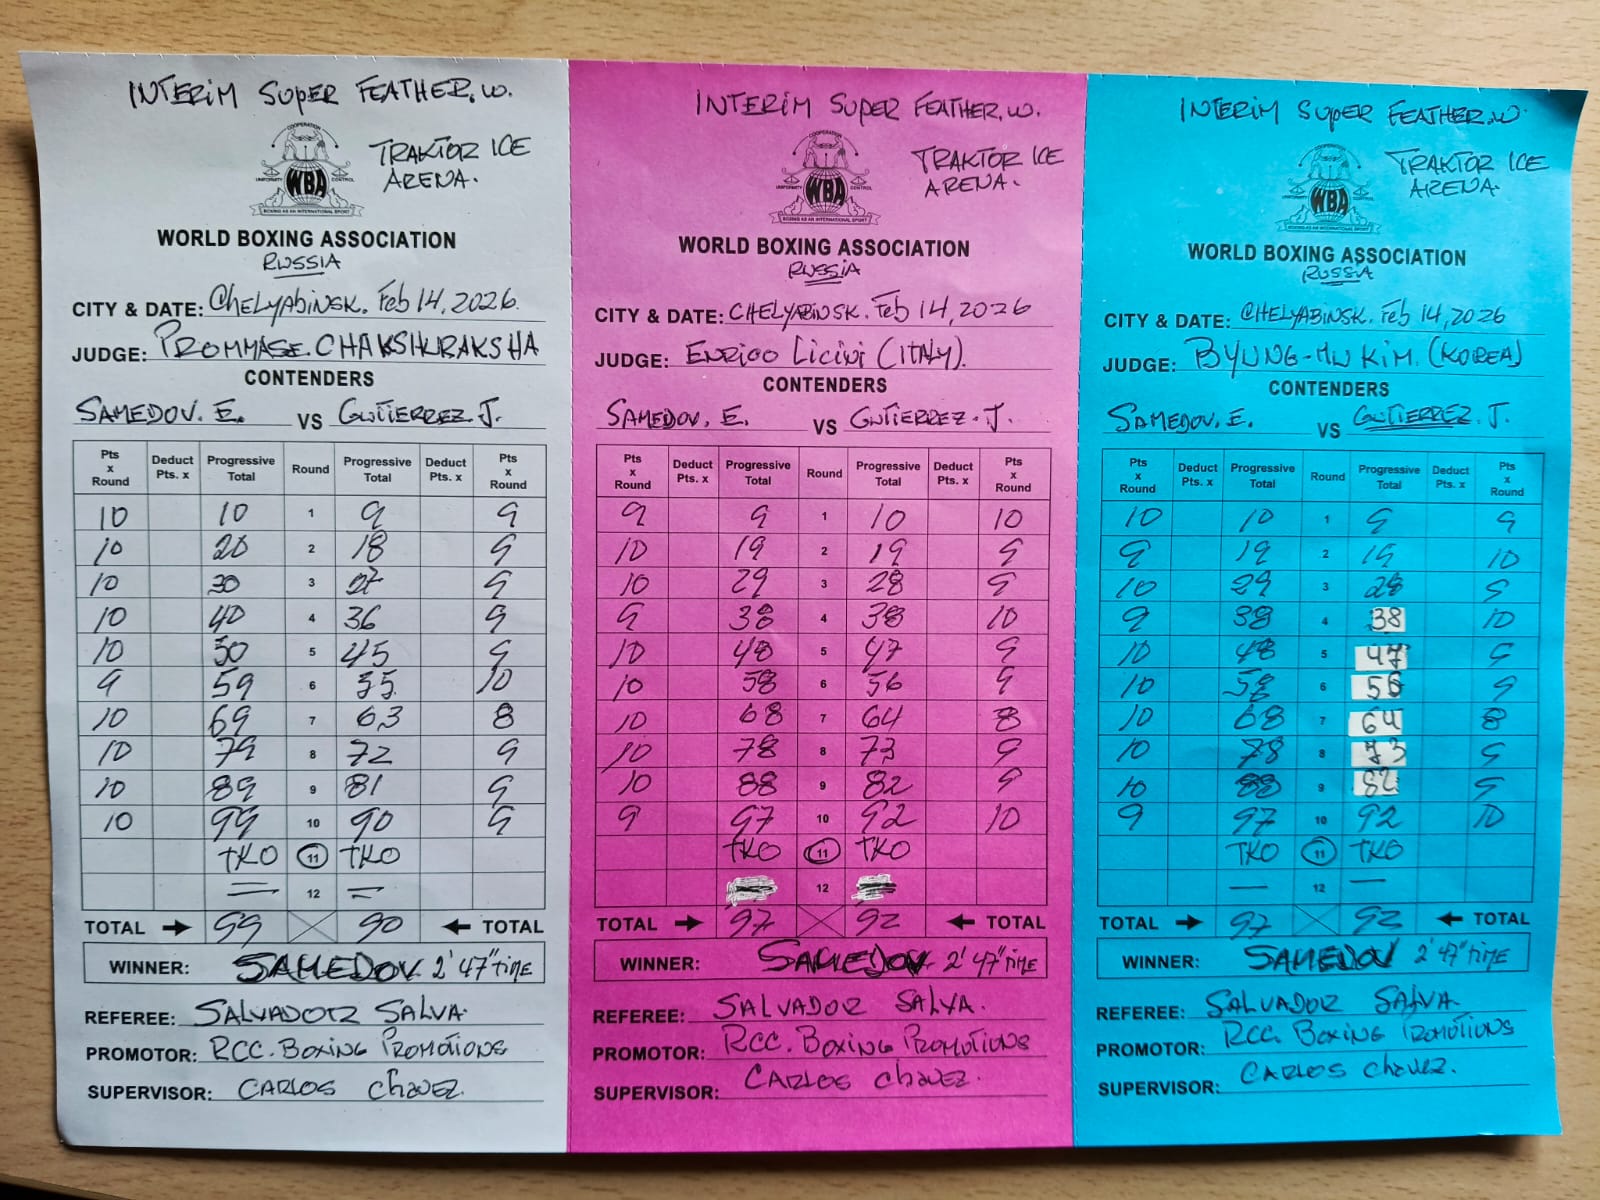 INTERIM SUPER FEATHER.W.
TRAKTOR ICE
ARENA.
COOPERATION
UNIFORMITY WBA CONTROL
BOXING AS AN INTERNATIONAL SPORT
WORLD BOXING ASSOCIATION
RUSSIA
CITY & DATE: CHELYABINSK. Feb 14, 2026.
JUDGE: PROMMASE. CHAKSHURAKSHA
CONTENDERS
SAMEDOV. E. VS GUTIERREZ. J.
Pts x Round Deduct Pts. x Progressive Total Round Progressive Total Deduct Pts. x Pts x Round
10 10 1 9 9
10 20 2 18 9
10 30 3 27 9
10 40 4 36 9
10 50 5 45 9
9 59 6 55 10
10 69 7 63 8
10 79 8 72 9
10 89 9 81 9
10 99 10 90 9
TKO 11 TKO
12
TOTAL → 99 90 ← TOTAL
WINNER: SAMEDOV 2' 47" TIME
REFEREE: SALVADOR SALVA.
PROMOTOR: RCC. BOXING PROMOTIONS
SUPERVISOR: CARLOS CHAVEZ.
INTERIM SUPER FEATHER.W.
TRAKTOR ICE
ARENA.
COOPERATION
UNIFORMITY WBA CONTROL
BOXING AS AN INTERNATIONAL SPORT
WORLD BOXING ASSOCIATION
RUSSIA
CITY & DATE: CHELYABINSK. Feb 14, 2026
JUDGE: ENRICO LICINI (ITALY).
CONTENDERS
SAMEDOV, E. VS GUTIERREZ. J.
Pts x Round Deduct Pts. x Progressive Total Round Progressive Total Deduct Pts. x Pts x Round
9 9 1 10 10
10 19 2 19 9
10 29 3 28 9
9 38 4 38 10
10 48 5 47 9
10 58 6 56 9
10 68 7 64 8
10 78 8 73 9
10 88 9 82 9
9 97 10 92 10
TKO 11 TKO
12
TOTAL → 97 92 ← TOTAL
WINNER: SAMEDOV 2' 47" TIME
REFEREE: SALVADOR SALVA.
PROMOTOR: RCC. BOXING PROMOTIONS
SUPERVISOR: CARLOS CHAVEZ.
INTERIM SUPER FEATHER.W.
TRAKTOR ICE
ARENA.
COOPERATION
UNIFORMITY WBA CONTROL
BOXING AS AN INTERNATIONAL SPORT
WORLD BOXING ASSOCIATION
RUSSIA
CITY & DATE: CHELYABINSK. Feb 14, 2026
JUDGE: BYUNG-MU KIM. (KOREA)
CONTENDERS
SAMEDOV, E. VS GUTIERREZ. J.
Pts x Round Deduct Pts. x Progressive Total Round Progressive Total Deduct Pts. x Pts x Round
10 10 1 9 9
9 19 2 19 10
10 29 3 28 9
9 38 4 38 10
10 48 5 47 9
10 58 6 56 9
10 68 7 64 8
10 78 8 73 9
10 88 9 82 9
9 97 10 92 10
TKO 11 TKO
12
TOTAL → 97 92 ← TOTAL
WINNER: SAMEDOV 2' 47" TIME
REFEREE: SALVADOR SALVA.
PROMOTOR: RCC. BOXING PROMOTIONS
SUPERVISOR: CARLOS CHAVEZ.